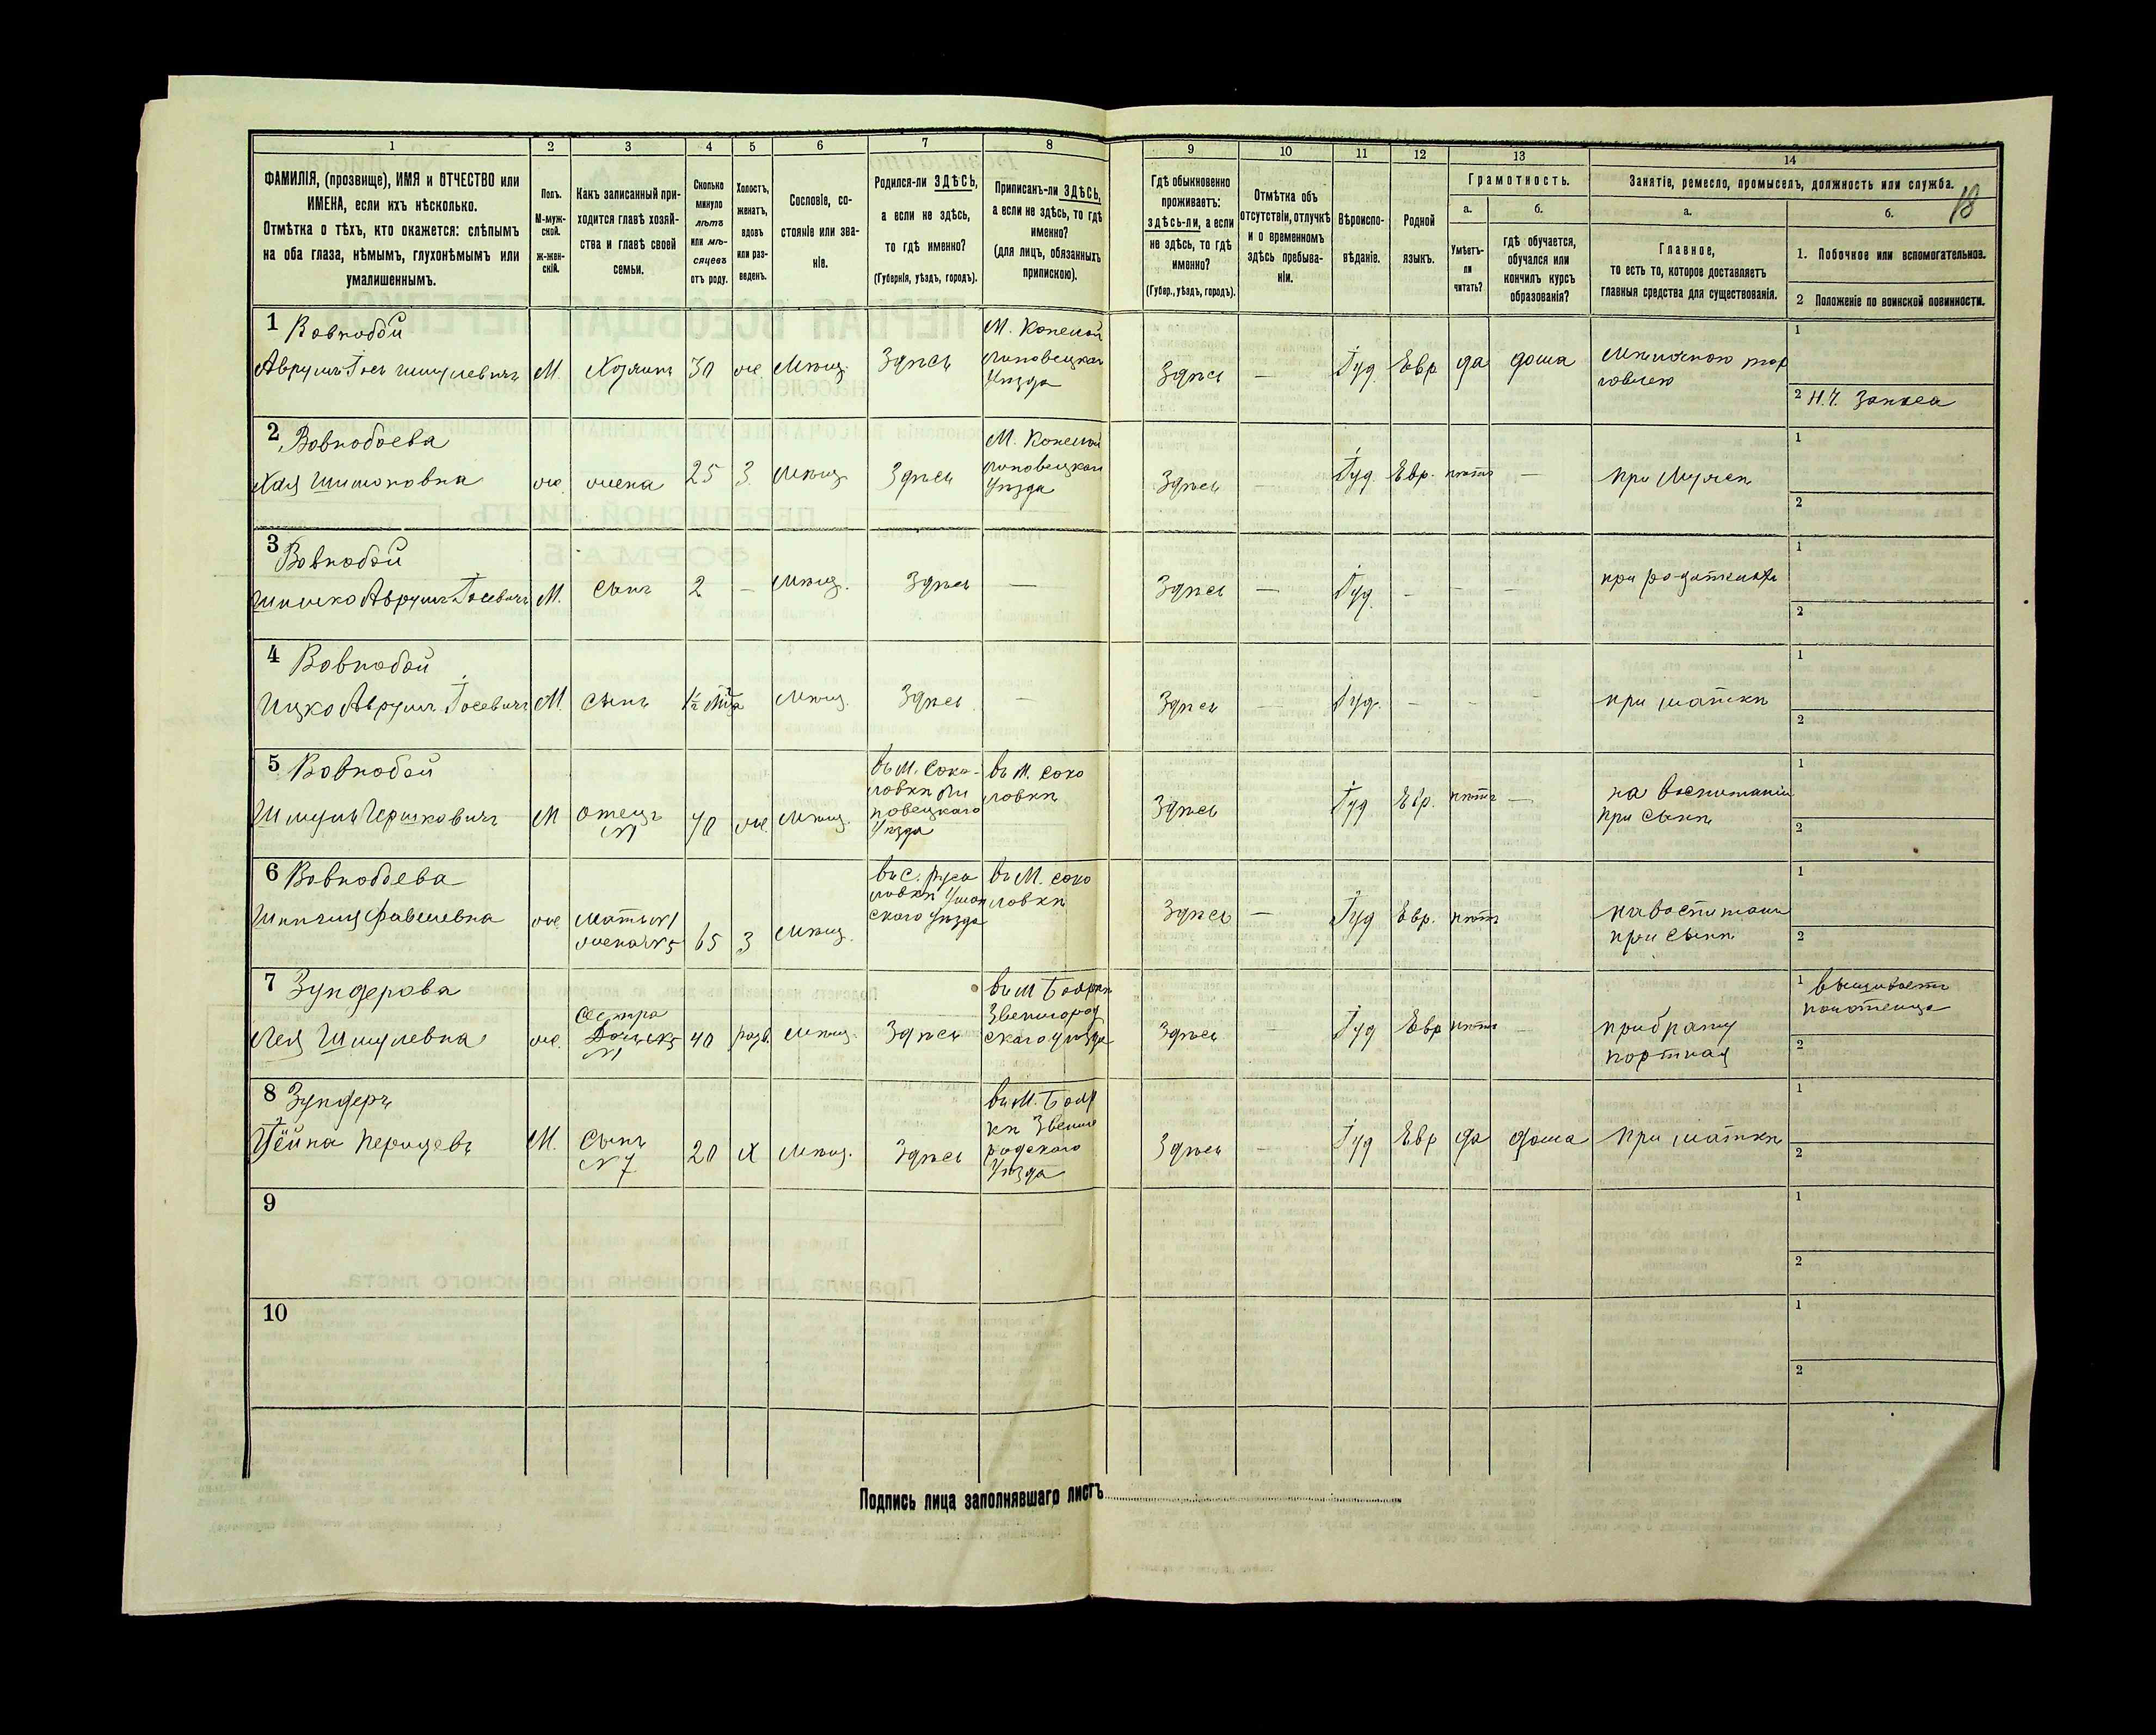 1
2
3
4
5
6
7
8
ФАМИЛІЯ, (прозвище), ИМЯ и ОТЧЕСТВО или
ИМЕНА, если ихъ нѣсколько.
Отмѣтка о тѣхъ, кто окажется: слѣпымъ
на оба глаза, нѣмымъ, глухонѣмымъ или
умалишеннымъ.
Полъ.
М-муж-
ской.
ж-жен-
скій.
Какъ записанный при-
ходится главѣ хозяй-
ства и главѣ своей
семьи.
Сколько
минуло
лѣтъ
или мѣ-
сяцевъ
отъ роду.
Холостъ,
женатъ,
вдовъ
или раз-
веденъ.
Сословіе, со-
стояніе или зва-
ніе.
Родился-ли ЗДѢСЬ,
а если не здѣсь,
то гдѣ именно?
(Губернія, уѣздъ, городъ).
Приписанъ-ли ЗДѢСЬ,
а если не здѣсь, то гдѣ
именно?
(для лицъ, обязанныхъ
припискою).
9
10
11
12
13
14
Гдѣ обыкновенно
проживаетъ:
здѣсь-ли, а если
не здѣсь, то гдѣ
именно?
(Губер., уѣздъ, городъ).
Отмѣтка объ
отсутствіи, отлучкѣ
и о временномъ
здѣсь пребыва-
ніи.
Вѣроиспо-
вѣданіе.
Родной
языкъ.
Грамотность.
а.
Умѣетъ-
ли
читать?
б.
гдѣ обучается,
обучался или
кончилъ курсъ
образованія?
Занятіе, ремесло, промыселъ, должность или служба.
18
а.
Главное,
то есть то, которое доставляетъ
главныя средства для существованія.
б.
1. Побочное или вспомогательное.
2 Положеніе по воинской повинности.
1 Вовкобой
Аврумъ Іось Шмулевичъ
М.
Хозяинъ
30
же.
Мѣщ.
Здѣсь
Уѣзда
Здѣсь
—
Іуд.
Евр
да
дома
1
2 Н.Ч. Запаса
2 Вовкобоева
Хая Шимоновна
же
жена
25
З.
Мѣщ
Здѣсь
Уѣзда
Здѣсь
—
Іуд.
Евр.
нѣтъ
—
при Мужѣ
1
2
3 Вовкобой
Аврумъ Іосевичъ
М.
Сынъ
2
—
Мѣщ.
Здѣсь
—
Здѣсь
—
Іуд.
—
—
—
при родителяхъ
1
2
4 Вовкобой
Ицко Аврумъ Іосевичъ
М.
Сынъ
Мѣщ.
Здѣсь
—
Здѣсь
—
Іуд.
—
—
—
при маткѣ
1
2
5 Вовкобой
Шмуль Гершковичъ
М
Отецъ
№1
70
же.
Мѣщ.
въ М. Соко-
ловкѣ Ли
повецкаго
Уѣзда
въ М. Соко
ловкѣ
Здѣсь
Іуд
Евр.
нѣтъ
—
на воспитаніи
при сынѣ
1
2
6 Вовкобоева
же
Мать №1
жена №5
65
З
Мѣщ.
ловкѣ Уман
скаго Уѣзда
въ М. Соко
ловкѣ
Здѣсь
—
Іуд
Евр.
нѣтъ
на воспитани
при сынѣ
1
2
7 Зундерова
Лея Шмулевна
же.
Сестра
№1
40
разв.
Мѣщ.
Здѣсь
въ М Боярк
Звенигород
скаго уѣзда
Здѣсь
—
Іуд
Евр
нѣтъ
—
при брату
портная
1 вышиваетъ
полотенца
2
8 Зундеръ
М.
Сынъ
№7
20
Х
Мѣщ.
Здѣсь
въ М. Бояр
кѣ Звениго
родскаго
Уѣзда
Здѣсь
—
Іуд
Евр
да
дома
при маткѣ
1
2
9
1
2
10
1
2
Подпись лица заполнявшаго листъ